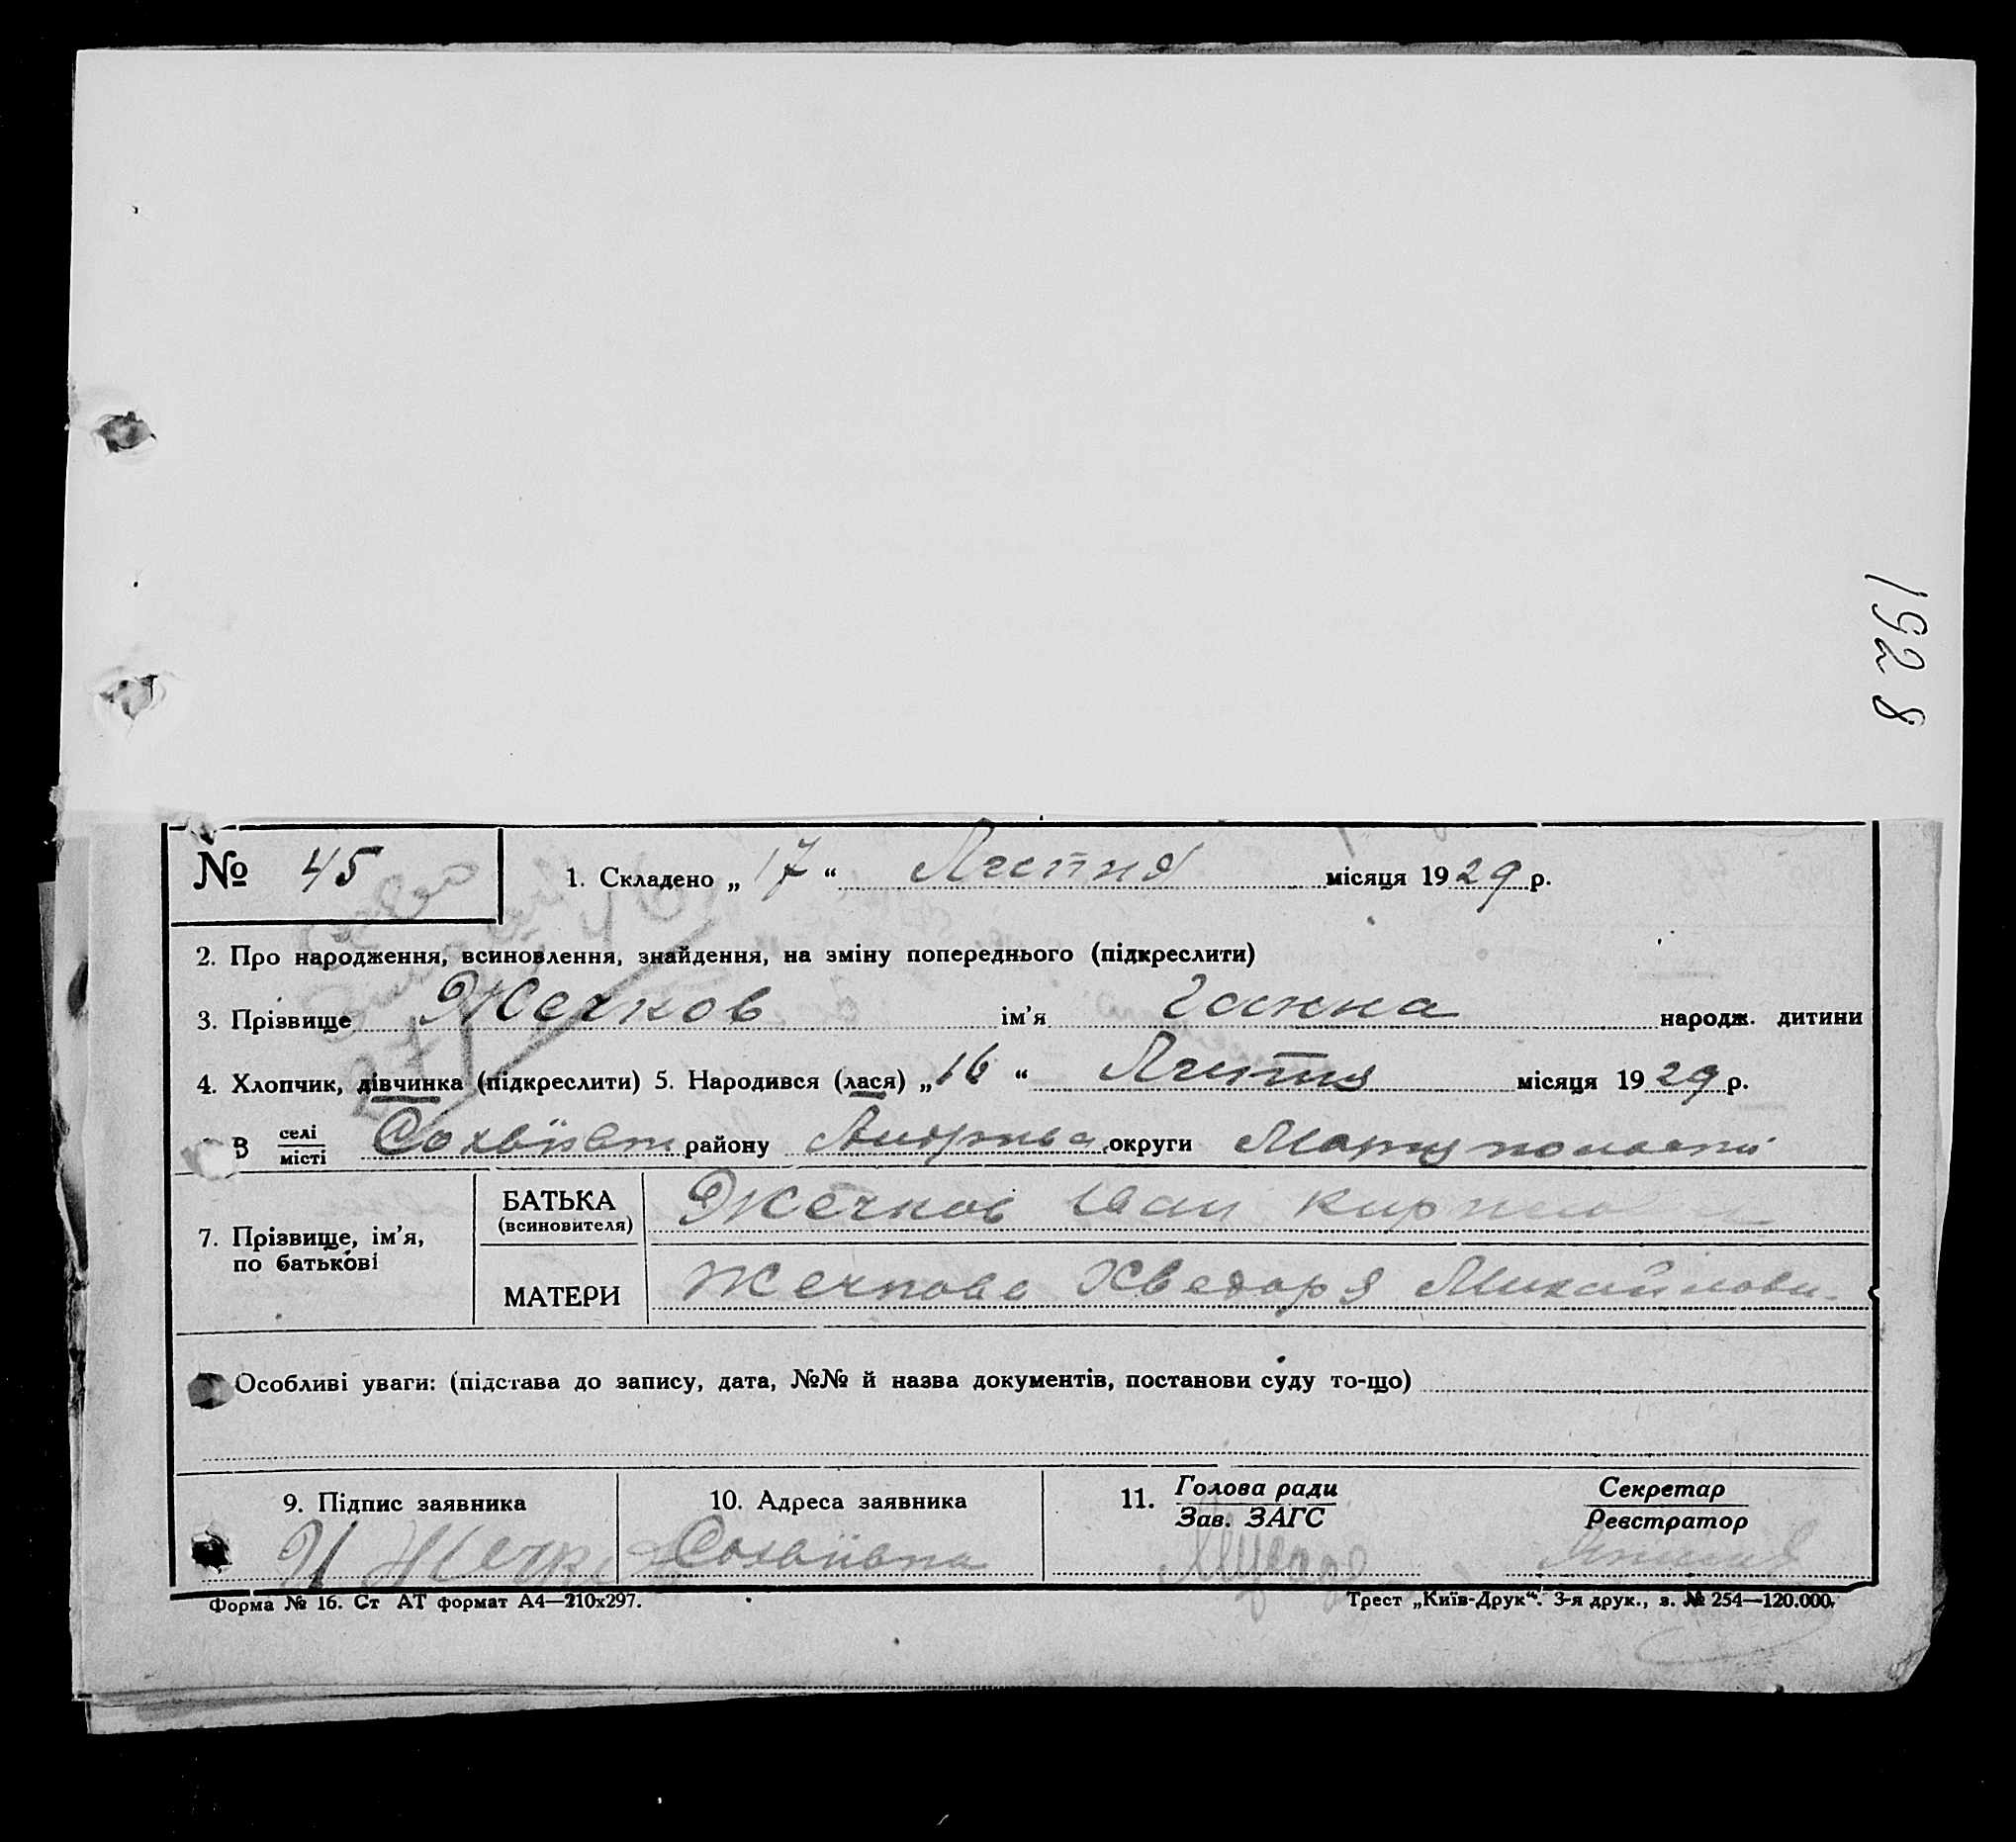 1928
№ 45
1. Складено „17“ Липня місяця 1929 р.
2. Про народження, всиновлення, знайдення, на зміну попереднього (підкреслити)
3. Прізвище Жечков ім’я Ганна народж. дитини
4. Хлопчик, дівчинка (підкреслити) 5. Народився (лася) „16“ Липня місяця 1929 р.
В селі місті району округи
7. Прізвище, ім’я, по батькові
БАТЬКА (всиновителя) Жечков Іван
МАТЕРИ Жечкова Хведоря Михайлови
Особливі уваги: (підстава до запису, дата, №№ й назва документів, постанови суду то-що)
9. Підпис заявника
10. Адреса заявника
11. Голова ради Зав. ЗАГС
Секретар Реєстратор
Форма № 16. Ст АТ формат А4—210х297.
Трест „Київ-Друк“. 3-я друк., з. № 254—120.000.